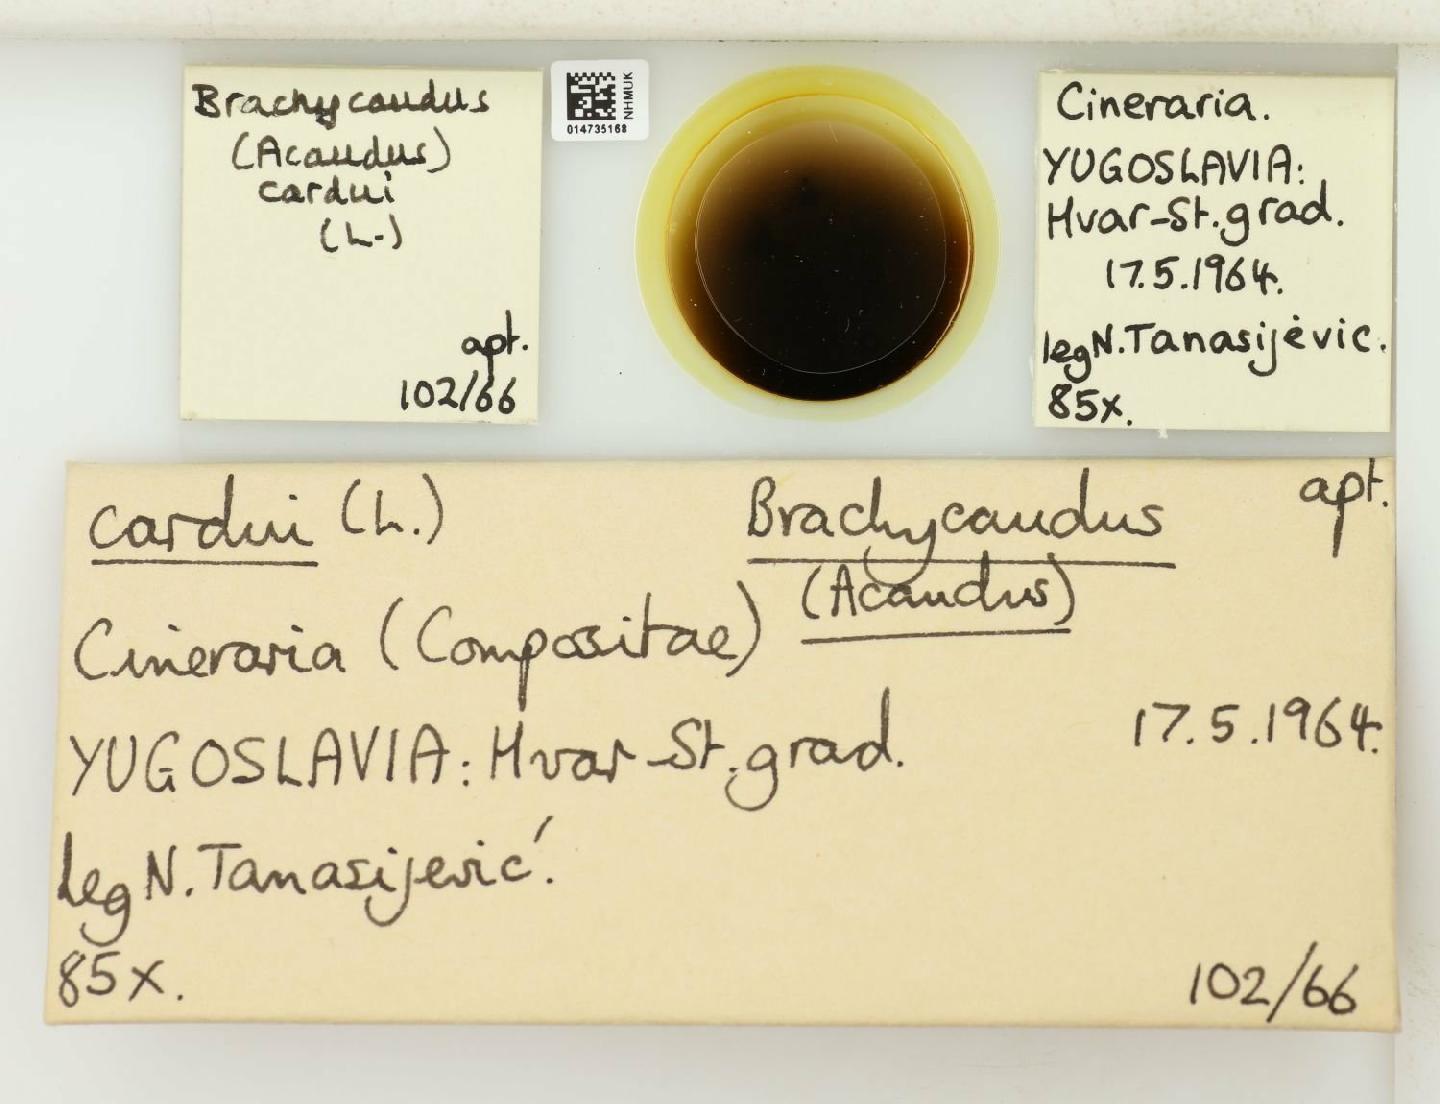 Brachycaudus
(Acaudus)
cardui
(L.)
apt.
102/66
NHMUK
014735168
Cineraria.
YUGOSLAVIA:
Hvar-St.grad.
17.5.1964.
leg N.Tanasijevic.
85x.
cardui (L.) Brachycaudus apt.
(Acaudus)
Cineraria (Compositae)
YUGOSLAVIA: Hvar-St.grad. 17.5.1964.
leg N.Tanasijević.
85x. 102/66